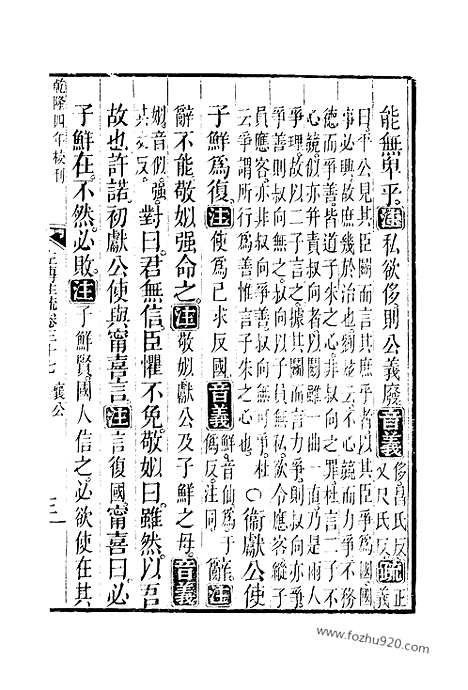 能無卑乎注私欲侈則公義廢音義侈昌氏反又尺氏反疏正義
曰平公見其臣鬭而言其庶乎者以其臣爭爲國國
事必興故庶幾於治也劉炫云不心競而力爭不務
德而爭善皆道子朱之心非叔向之罪杜言二子不
心競似亦并責叔向者鬭雖一曲一直乃是兩人
爭理故以二子言之據其鬭而力爭則叔向亦爭
爭善則叔向無之叔向以子員無私欲令應客縱子
員應客亦非叔向爭善叔向無可爭也杜
云爭謂所行爲善惟言子朱之心也○衞獻公使
子鮮爲復注使爲己求反國音義鮮音仙爲于僞反注同辭注
辭不能敬姒强命之注敬姒獻公及子鮮之母音義
姒音似强其丈反對曰君無信臣懼不免敬姒曰雖然以吾
故也許諾初獻公使與甯喜言注言復國甯喜曰必
子鮮在不然必敗注子鮮賢國人信之必欲使在其
乾隆四年校刊 左傳注疏卷三十七 襄公 三
www.fozhu920.com